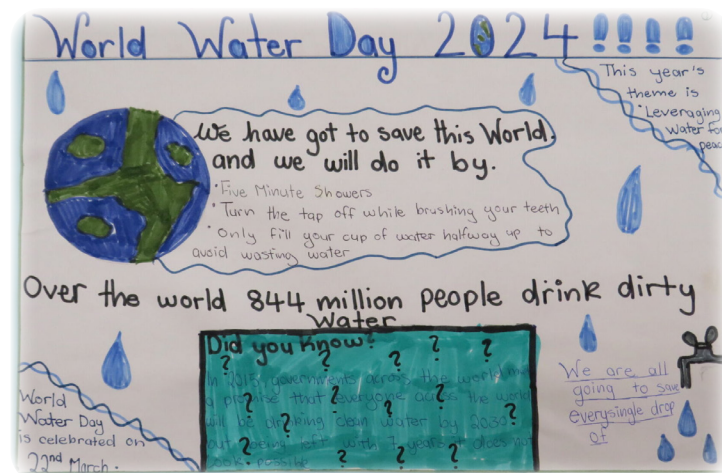 World Water Day 2024 !!!!
This year's
theme is
"Leveraging
Water for
peac
We have got to save this World.
and we will do it by.
• Five Minute Showers
• Turn the tap off while brushing your teeth
• Only fill your cup of water halfway up to
avoid wasting water
Over the world 844 million people drink dirty
Water
Did you know?
? ? ? ? ?
In 2015, governments across the world
a promise that everyone across the world
will be drinking clean water by 2030
but being left with 7 years it does not
look possible
We are all
going to save
everysingle drop
of
World
Water Day
is celebrated on
22nd March.